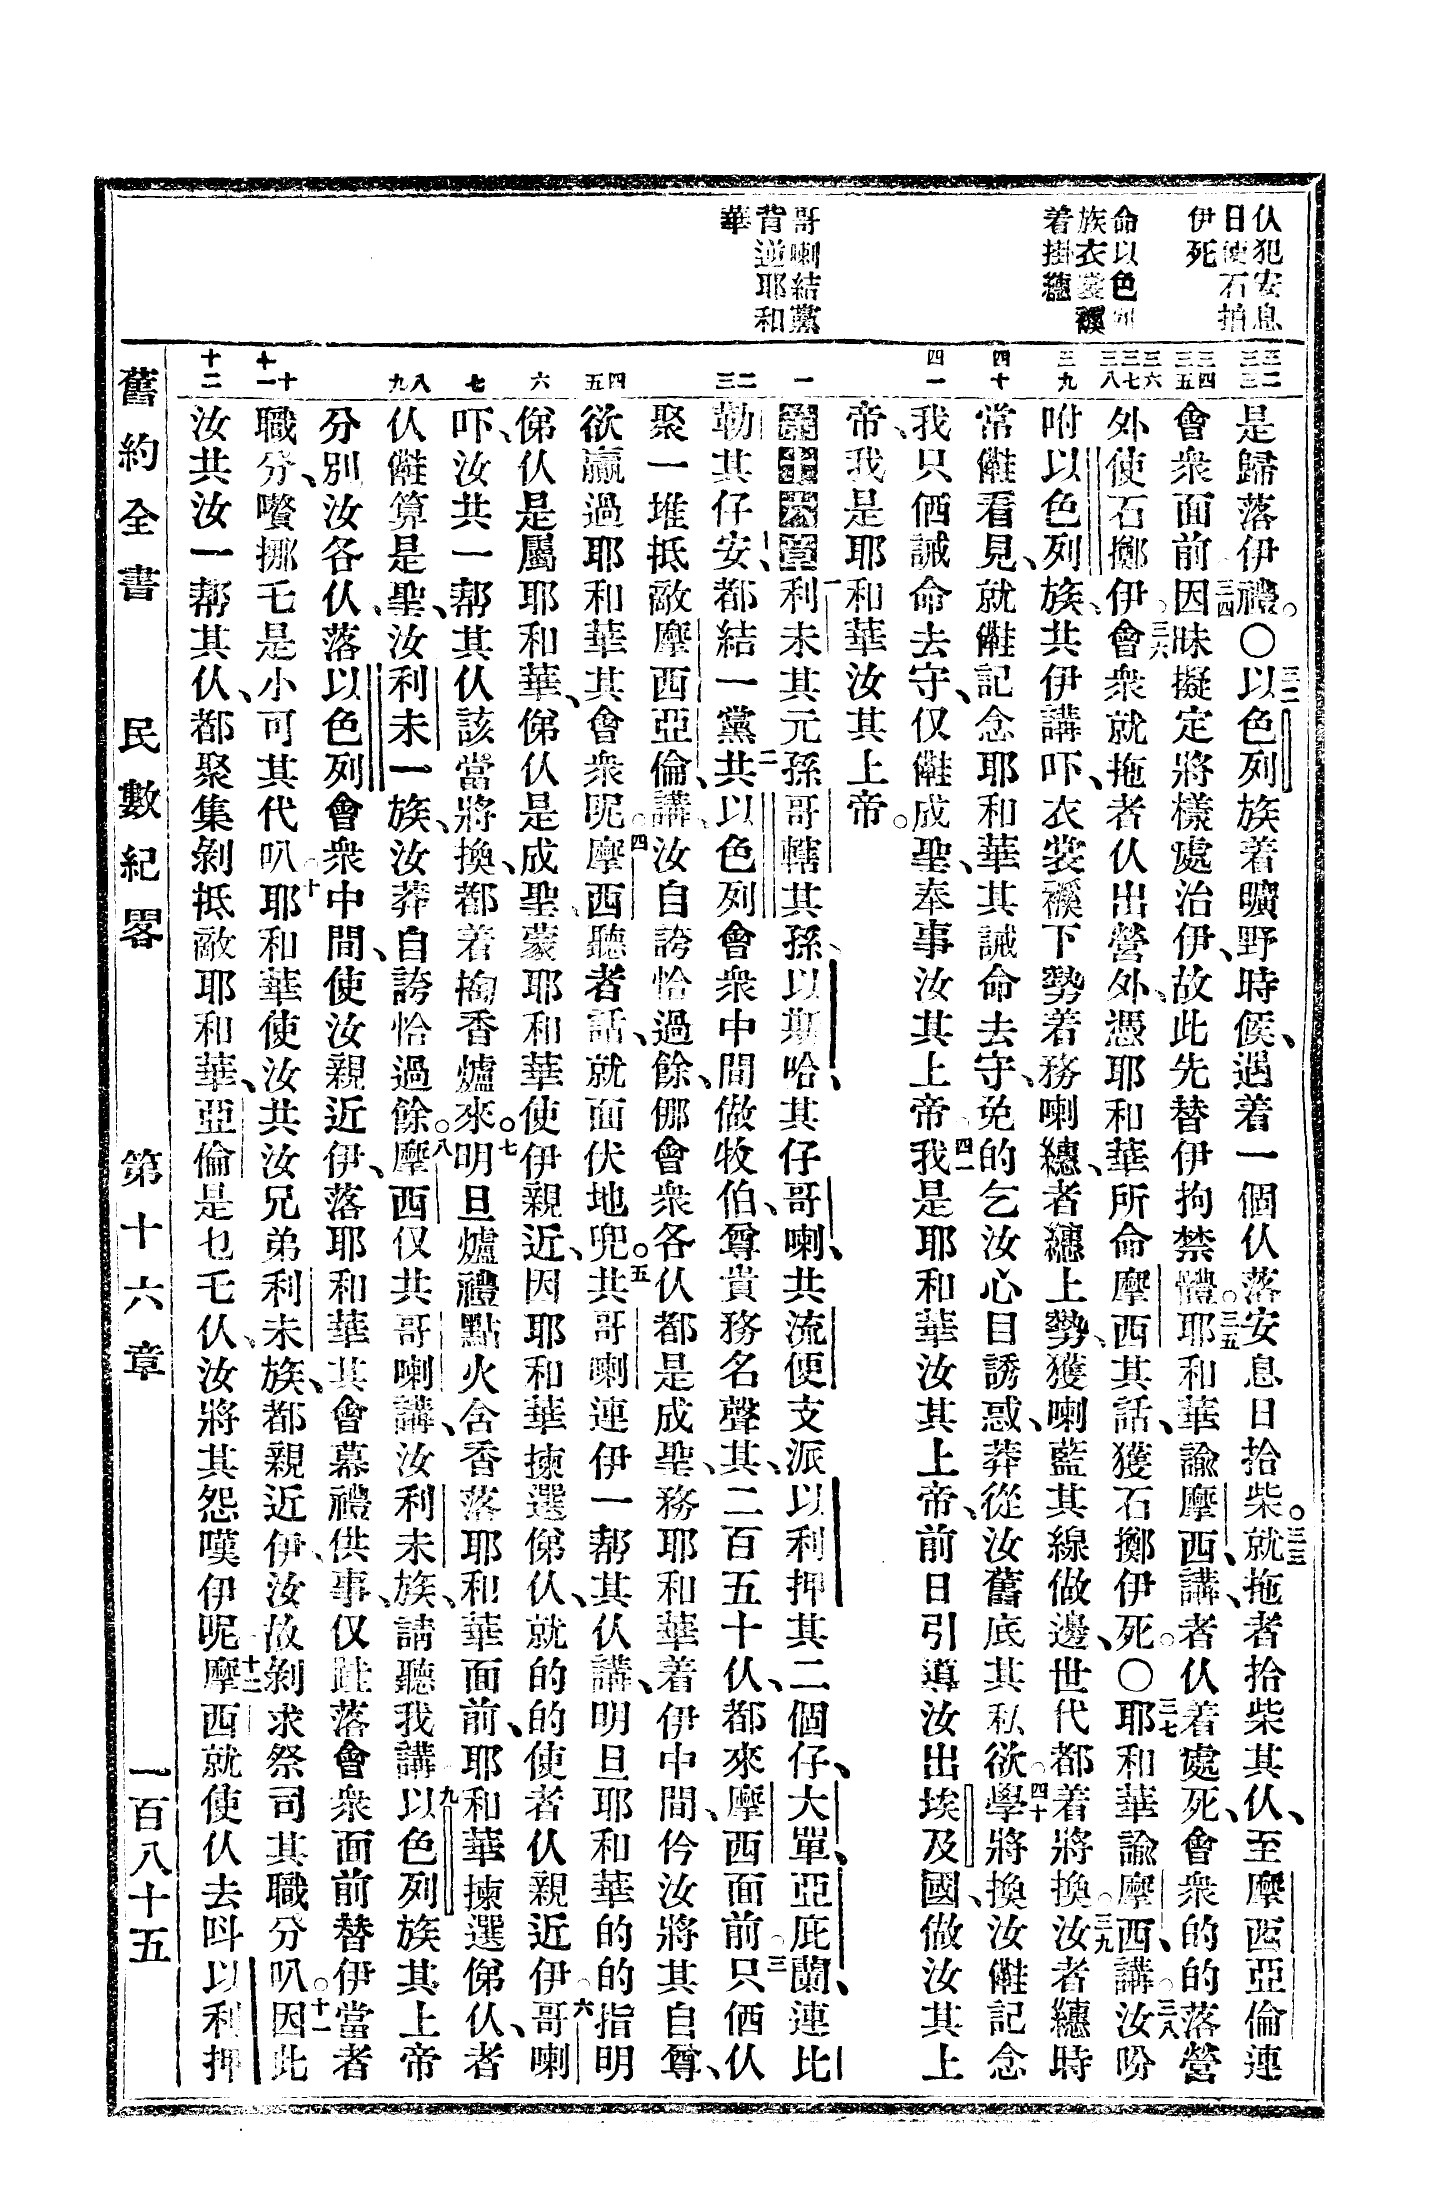 仫犯安息
日使石拍
伊死
命以色列
族衣裳襆
着掛繐
哥喇結黨
背逆耶和
華
三二 三三
三四 三五
三六 三七 三八
三九
四十
四一
一
二 三
四 五
六
七
八 九
十 十一
十二
是歸落伊禮。〇三二以色列族着曠野時候、遇着一個仫落安息日拾柴。三三就拖者拾柴其仫、至摩西亞倫連
會衆面前三四因昧擬定將樣處治伊、故此先替伊拘禁禮。三五耶和華諭摩西、講、者仫着處死、會衆的的落營
外使石擲伊。三六會衆就拖者仫出營外、憑耶和華所命摩西其話、獲石擲伊死。〇三七耶和華諭摩西、講三八汝吩
咐以色列族、共伊講吓、衣裳襆下勢着務喇繐、者繐上勢、獲喇藍其線做邊、世代都着將換。三九汝者繐時
常儺看見、就儺記念耶和華其誡命去守、免的乞汝心目誘惑、莽從汝舊底其私欲。四十學將換汝儺記念
我只伵誡命去守、仅儺成聖、奉事汝其上帝四一我是耶和華汝其上帝、前日引導汝出埃及國、做汝其上
帝、我是耶和華汝其上帝。
第十六章一利未其元孫哥轄其孫、以斯哈其仔哥喇、共流便支派、以利押其二個仔、大單、亞庇蘭、連比
勒其仔安、都結一黨二共以色列會衆中間做牧伯、尊貴務名聲其、二百五十仫、都來摩西面前。三只伵仫
聚一堆抵敵摩西亞倫、講、汝自誇恰過餘、㑚會衆各仫都是成聖、務耶和華着伊中間、伶汝將其自尊、
欲贏過耶和華其會衆呢。四摩西聽者話、就面伏地兜。五共哥喇連伊一幫其仫講、明旦耶和華的的指明
俤仫是屬耶和華、俤仫是成聖、蒙耶和華使伊親近、因耶和華揀選俤仫、就的的使者仫親近伊。六哥喇
吓、汝共一幫其仫該當將換、都着掏香爐來。七明旦爐禮點火含香落耶和華面前、耶和華揀選俤仫、者
仫儺算是聖、汝利未一族、汝莽自誇恰過餘。八摩西仅共哥喇講、汝利未族、請聽我講九以色列族其上帝
分別汝各仫、落以色列會衆中間、使汝親近伊、落耶和華其會幕禮供事、仅跬落會衆面前替伊當者
職分、嚽挪乇是小可其代叭。十耶和華使汝共汝兄弟利未族、都親近伊、汝故剝求祭司其職分叭。十一因此
汝共汝一幫其仫、都聚集剝抵敵耶和華、亞倫是乜乇仫、汝將其怨嘆伊呢十二摩西就使仫去呌以利押
舊約全書 民數紀畧 第十六章 一百八十五